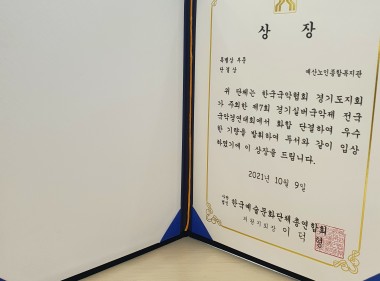 상 장
특별상 우수
단체상
예산노인종합복지관
위 단체는 한국국악협회 경기도지회
가 주최한 제7회 경기실버국악제 전국
국악경연대회에서 화합 단결하여 우수
한 기량을 발휘하여 두서와 같이 입상
하였기에 이 상장을 드립니다.
2021년 10월 9일
한국예술문화단체총연합회
이 덕